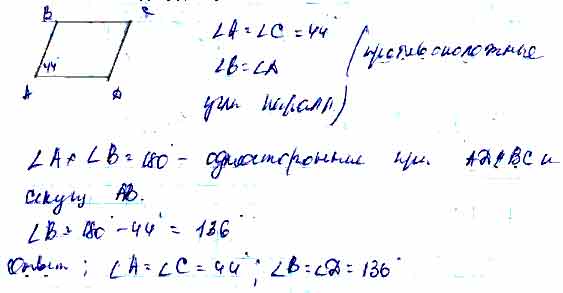 B C
∠A = ∠C = 44°
44°
∠B = ∠D (противоположные
A D
углы паралл)
∠A + ∠B = 180° - односторонние при AD∥BC и
секущ AB.
∠B = 180° - 44° = 136°
Ответ: ∠A = ∠C = 44°; ∠B = ∠D = 136°